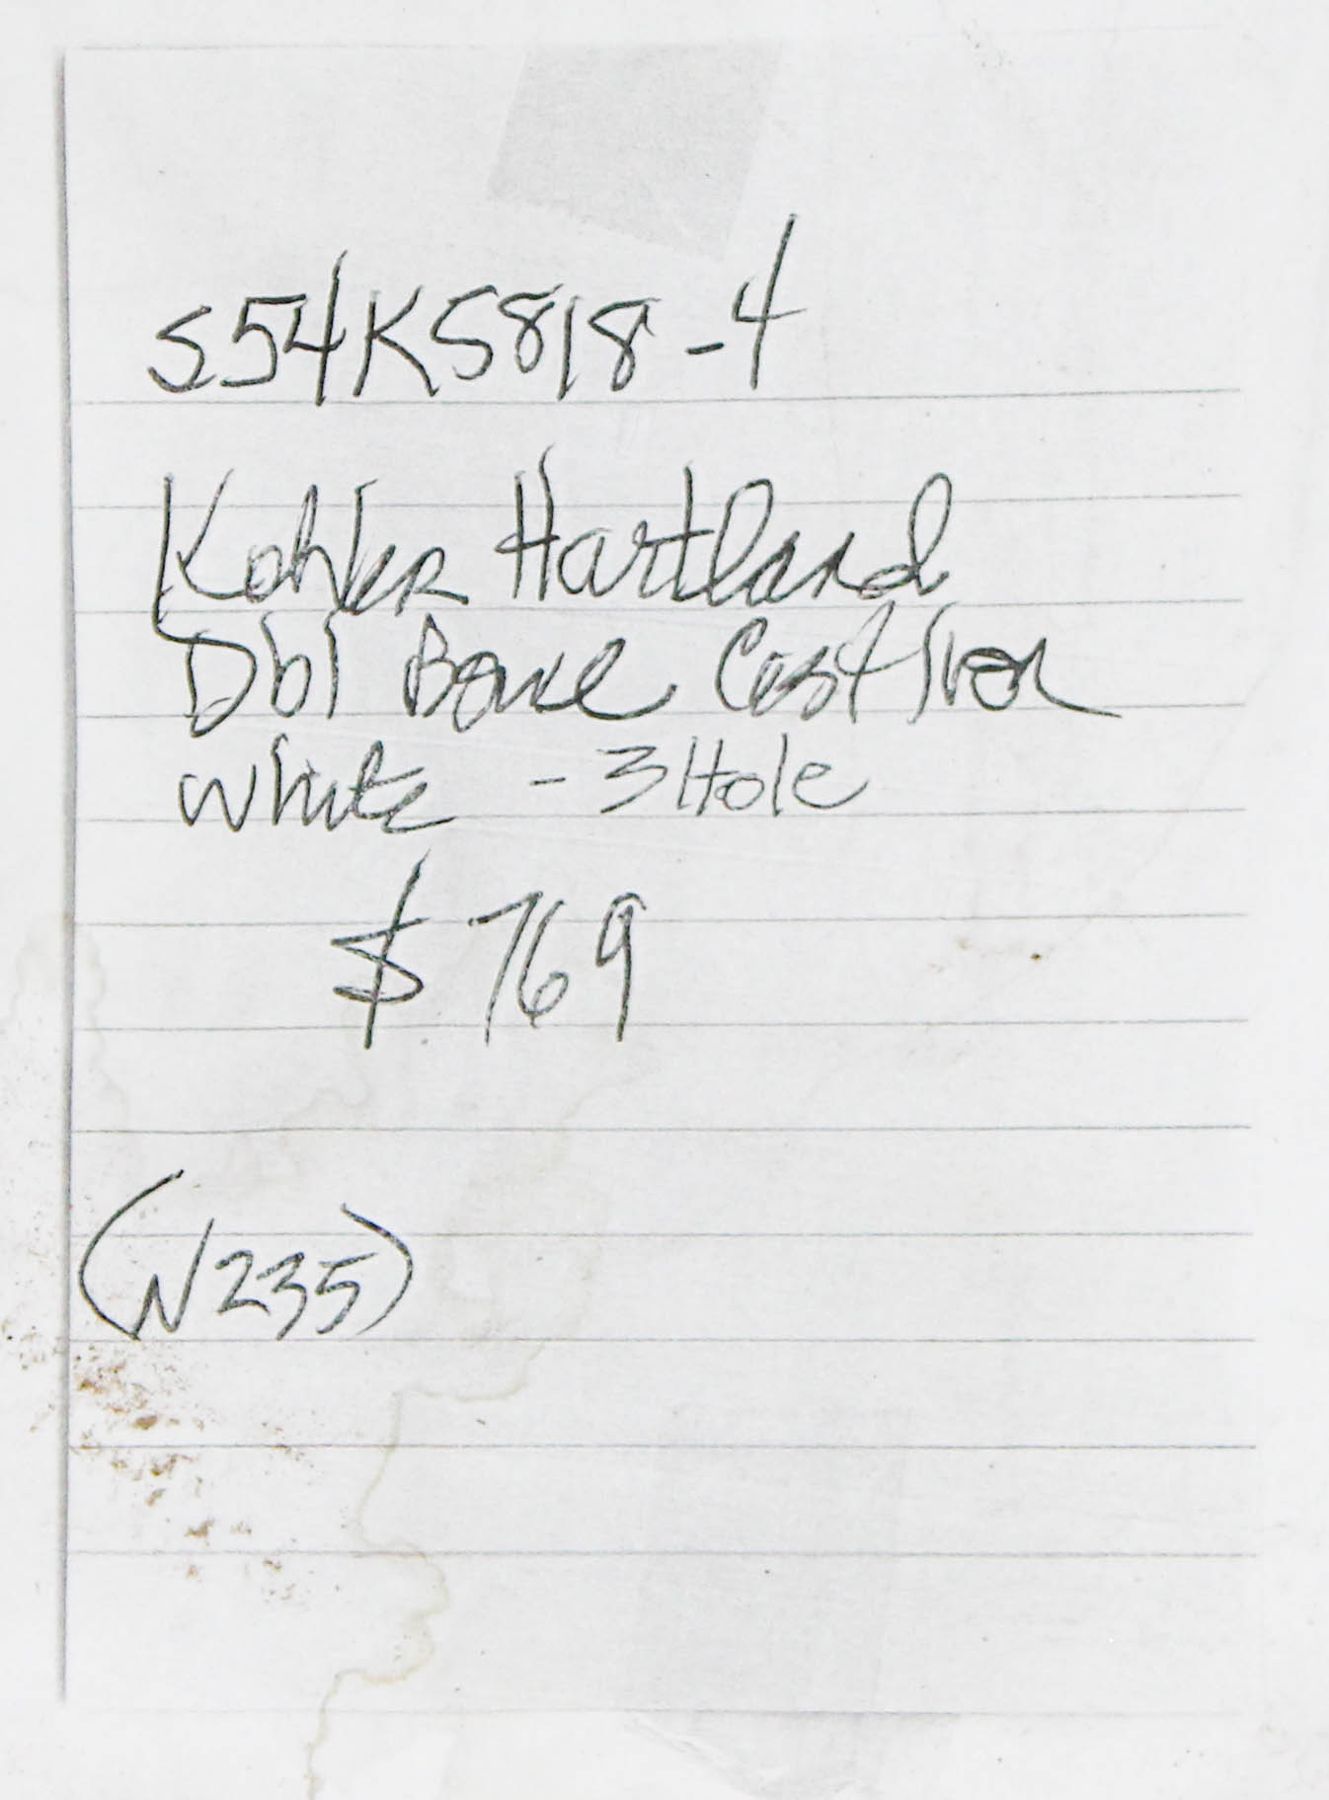 S54K5818-4
Kohler Hartland
Dbl Bowl Cast Iron
White - 3 Hole
$ 769
(N235)